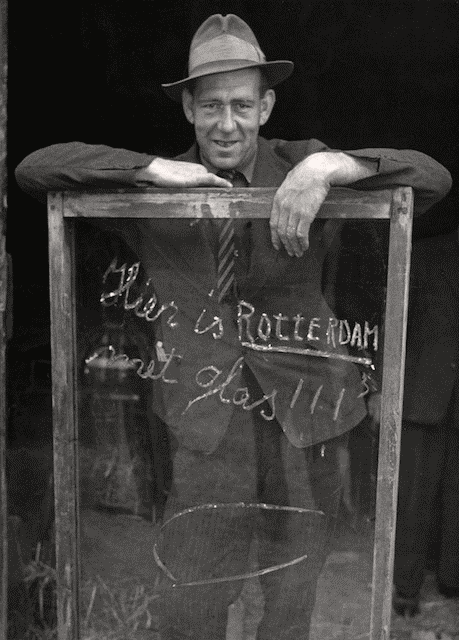 Hier is ROTTERDAM
met glas!!!